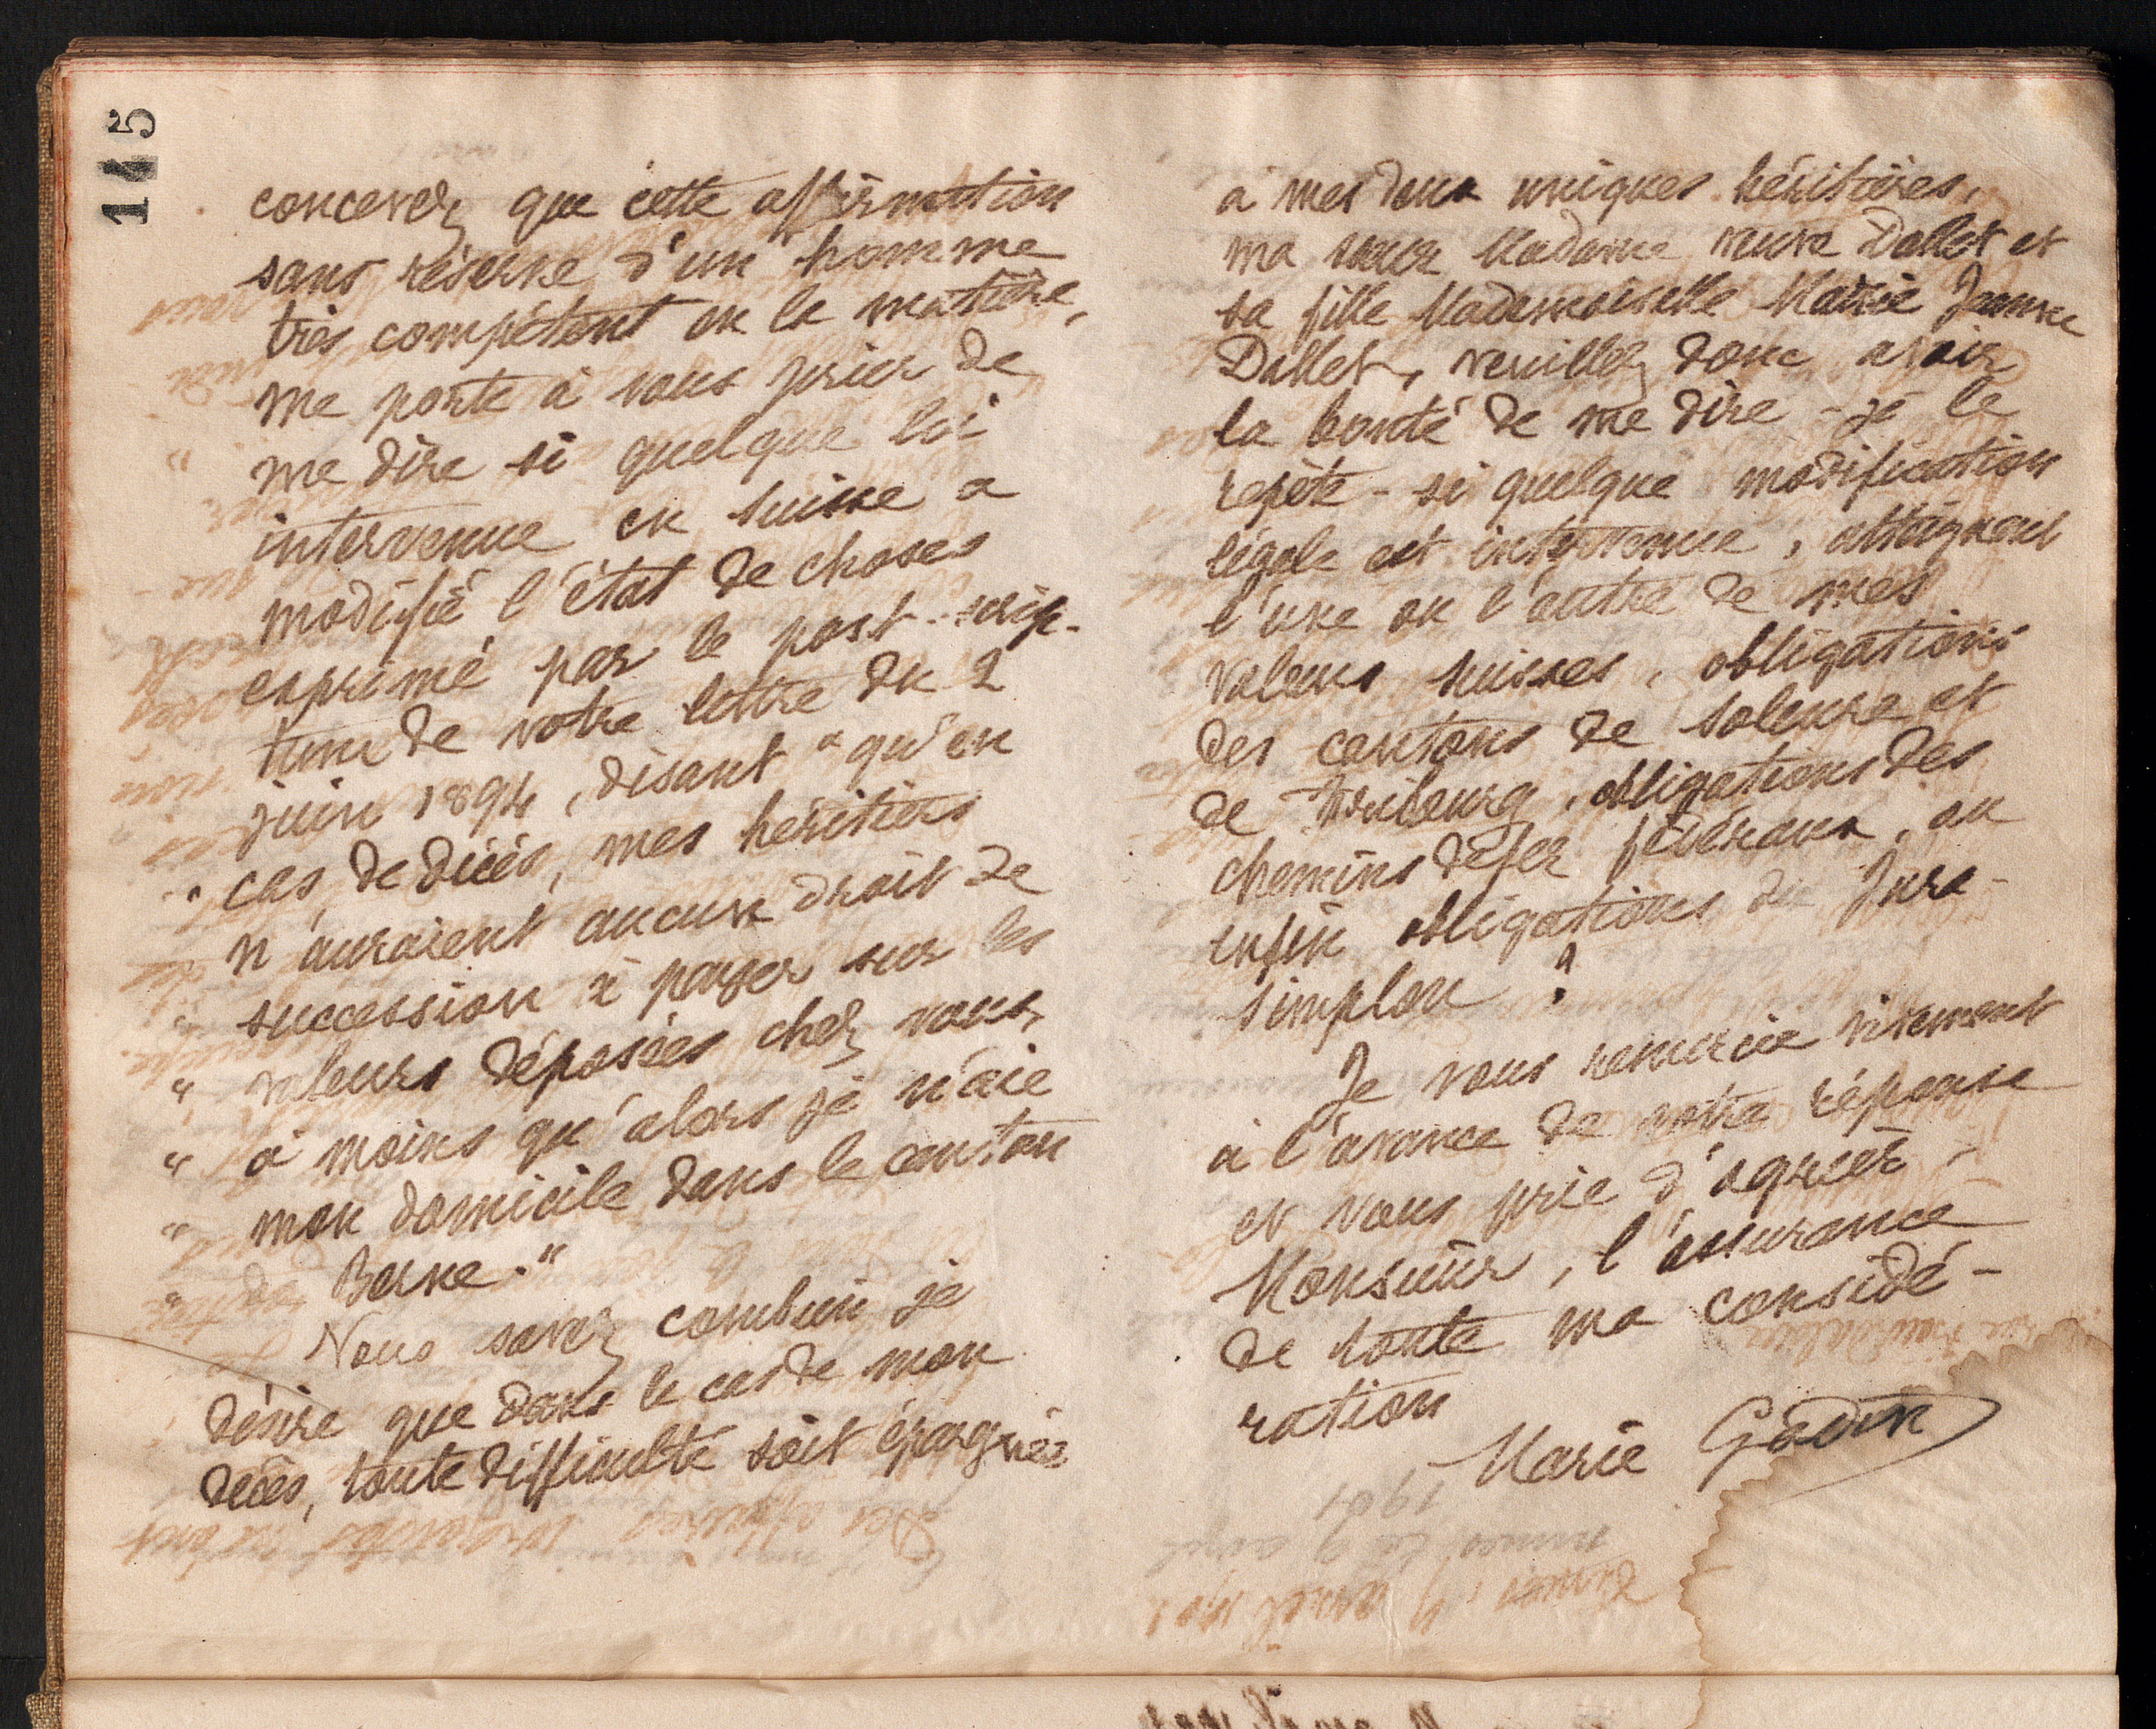 145
concevez que cette affirmation
sans réserve d'un homme
très compétent en la matière,
me porte à vous prier de
" me dire si quelque loi
intervenue en Suisse a
modifié l'état de choses
exprimé par le post-scrip-
tum de votre lettre du 2
juin 1894, disant " qu'en
" cas de décès, mes héritiers
n'auraient aucun droit de
" succession à payer sur les
" valeurs déposées chez vous,
" à moins qu'alors je n'aie
" mon domicile dans le canton
" de Berne."
Vous savez combien je
désire que dans le cas de mon
décès, toute difficulté soit épargnée
à mes deux uniques héritières,
ma sœur Madame veuve Dallet et
sa fille Mademoiselle Marie Jeanne
Dallet, veuillez donc avoir
la bonté de me dire - je le
repète - si quelque modification
légale est intervenue, atteignant
l'une ou l'autre de mes
valeurs suisses, obligations
des cantons de Soleure et
de Fribourg, obligations des
chemins de fer fédéraux, ou
enfin obligations du Jura-
Simplon ?
Je vous remercie vivement
à l'avance de votre réponse
et vous prie d'agréer,
Monsieur, l'assurance
de toute ma considé-
ration
Marie Godin